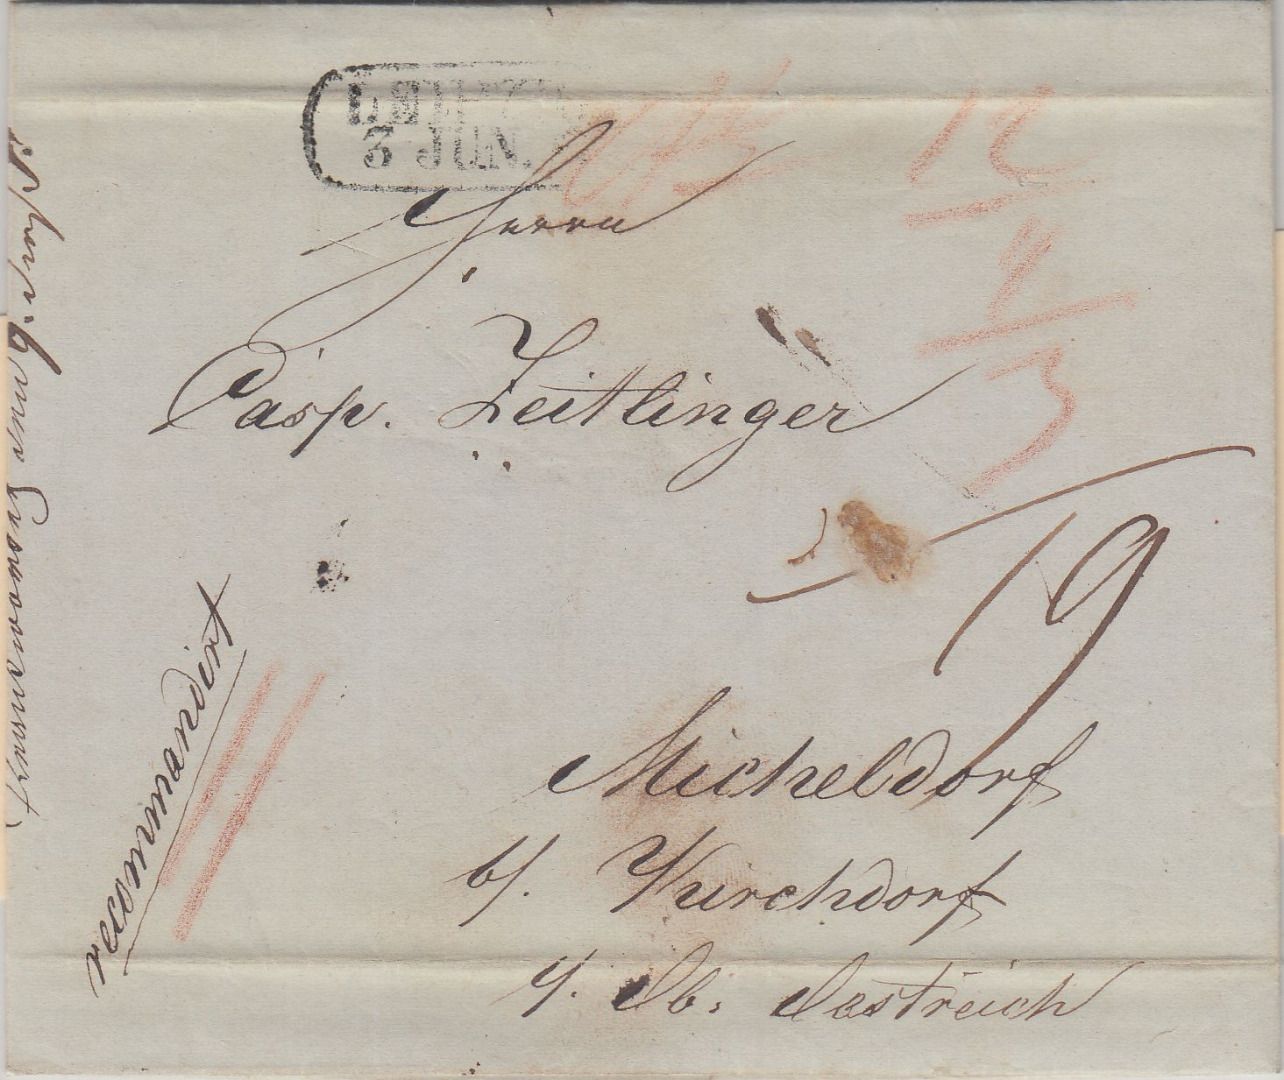 LEIPZIG
3 JUN.
Herrn
Casp. Zeitlinger
19
Micheldorf
b/. Kirchdorf
i/. Ob. Oestreich
recommandirt
12
3